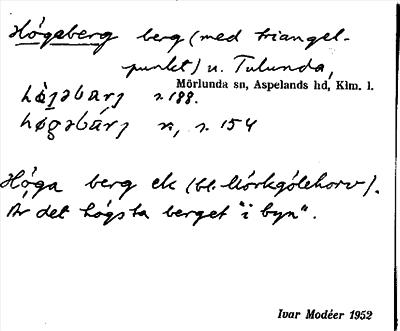 Högaberg berg (med triangel-
punkt) u. Tulunda,
Mörlunda sn, Aspelands hd, Klm. l.
s. 188.
n, s. 154
Höga berg ek (bl. Mörkgölehorv).
Är det högsta berget "i byn".
Ivar Modéer 1952